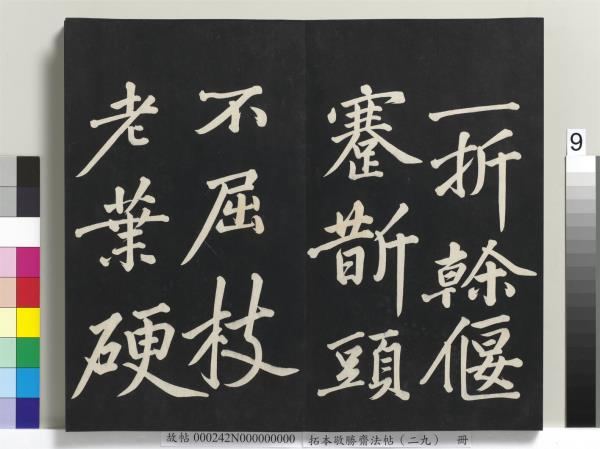 一折榦偃
蹇斮頭
不屈枝
老葉硬
9
故帖 000242N000000000 拓本敬勝齋法帖（二九） 冊